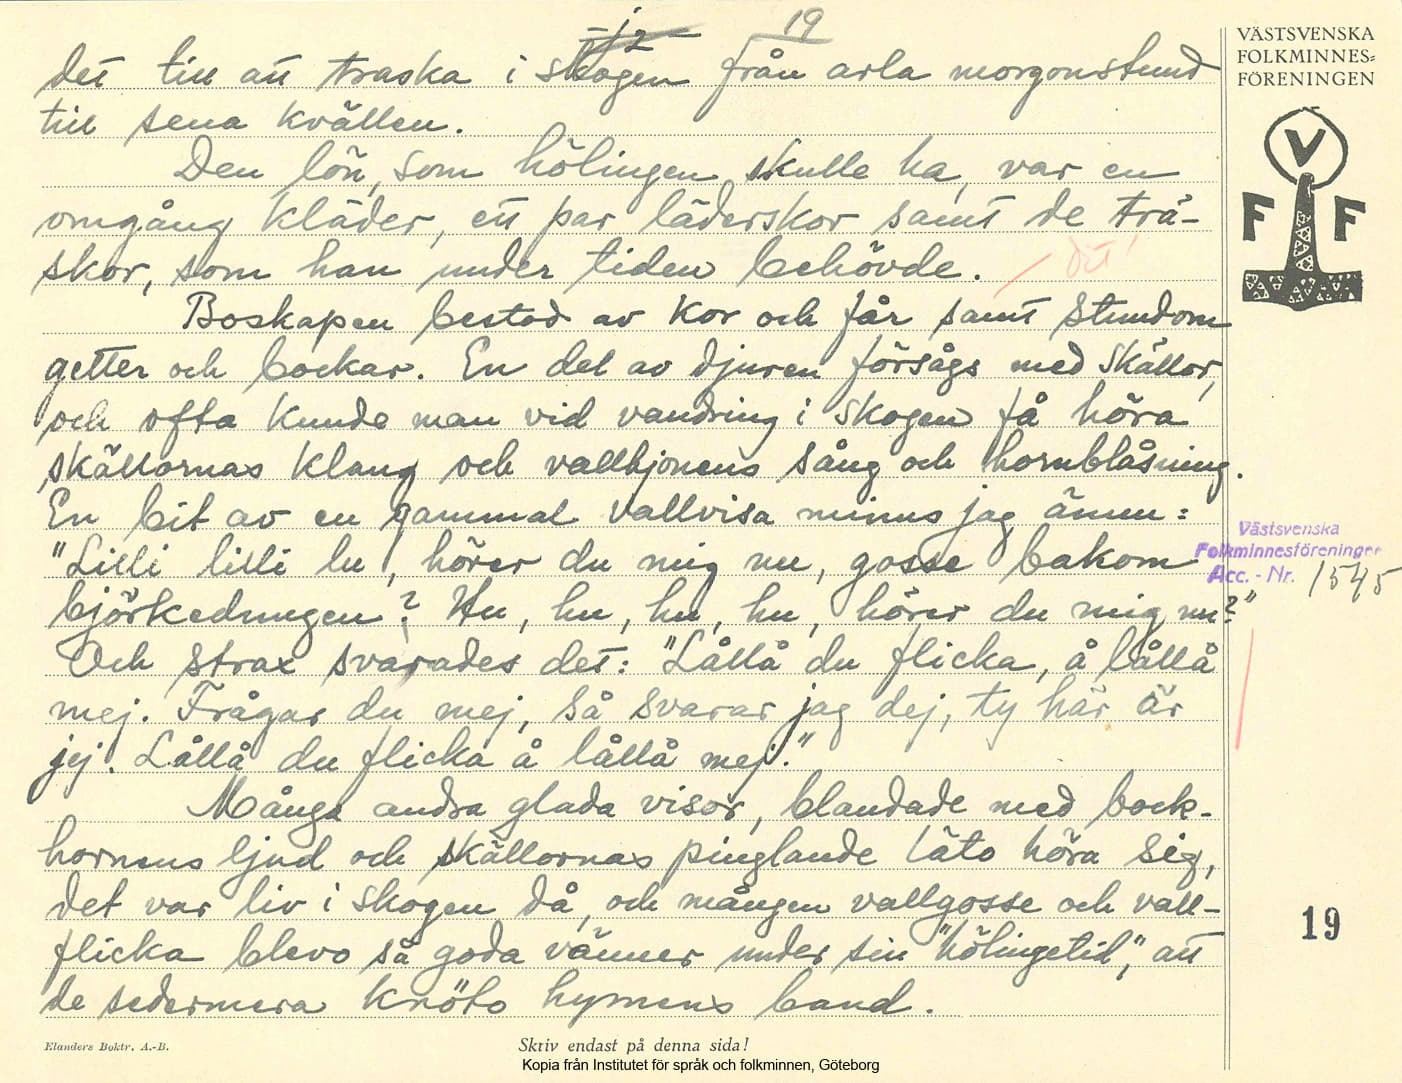 19
det till att traska i skogen från arla morgonstund
till sena kvällen.
Den lön, som hölingen skulle ha, var en
omgång kläder, ett par läderskor samt de trä-
skor, som han under tiden behövde.
Boskapen bestod av kor och får samt stundom
getter och bockar. En del av djuren försågs med skällor,
och ofta kunde man vid vandring i skogen få höra
skällornas klang och vallhjonens sång och hornblåsning.
En bit av en gammal vallvisa minns jag ännu:
"Lilli lilli lu, hörer du mig nu, gosse bakom
björkedungen? Hu, hu, hu, hu, hörer du mig nu?"
Och strax svarades det: "Lållå du flicka, å lållå
mej. Frågar du mej, så svarar jag dej, ty här är
jej. Lållå du flicka å lållå mej."
Många andra glada visor, blandade med bock-
hornens ljud och skällornas pinglande läto höra sig,
det var liv i skogen då, och mången vallgosse och vall-
flicka blevo så goda vänner under sin "hölingetid", att
de sedermera knöto hymens band.
VÄSTSVENSKA
FOLKMINNES=
FÖRENINGEN
V
F F
Västsvenska
Folkminnesföreningen
Acc. - Nr. 1545
19
Elanders Boktr. A.-B.
Skriv endast på denna sida!
Kopia från Institutet för språk och folkminnen, Göteborg